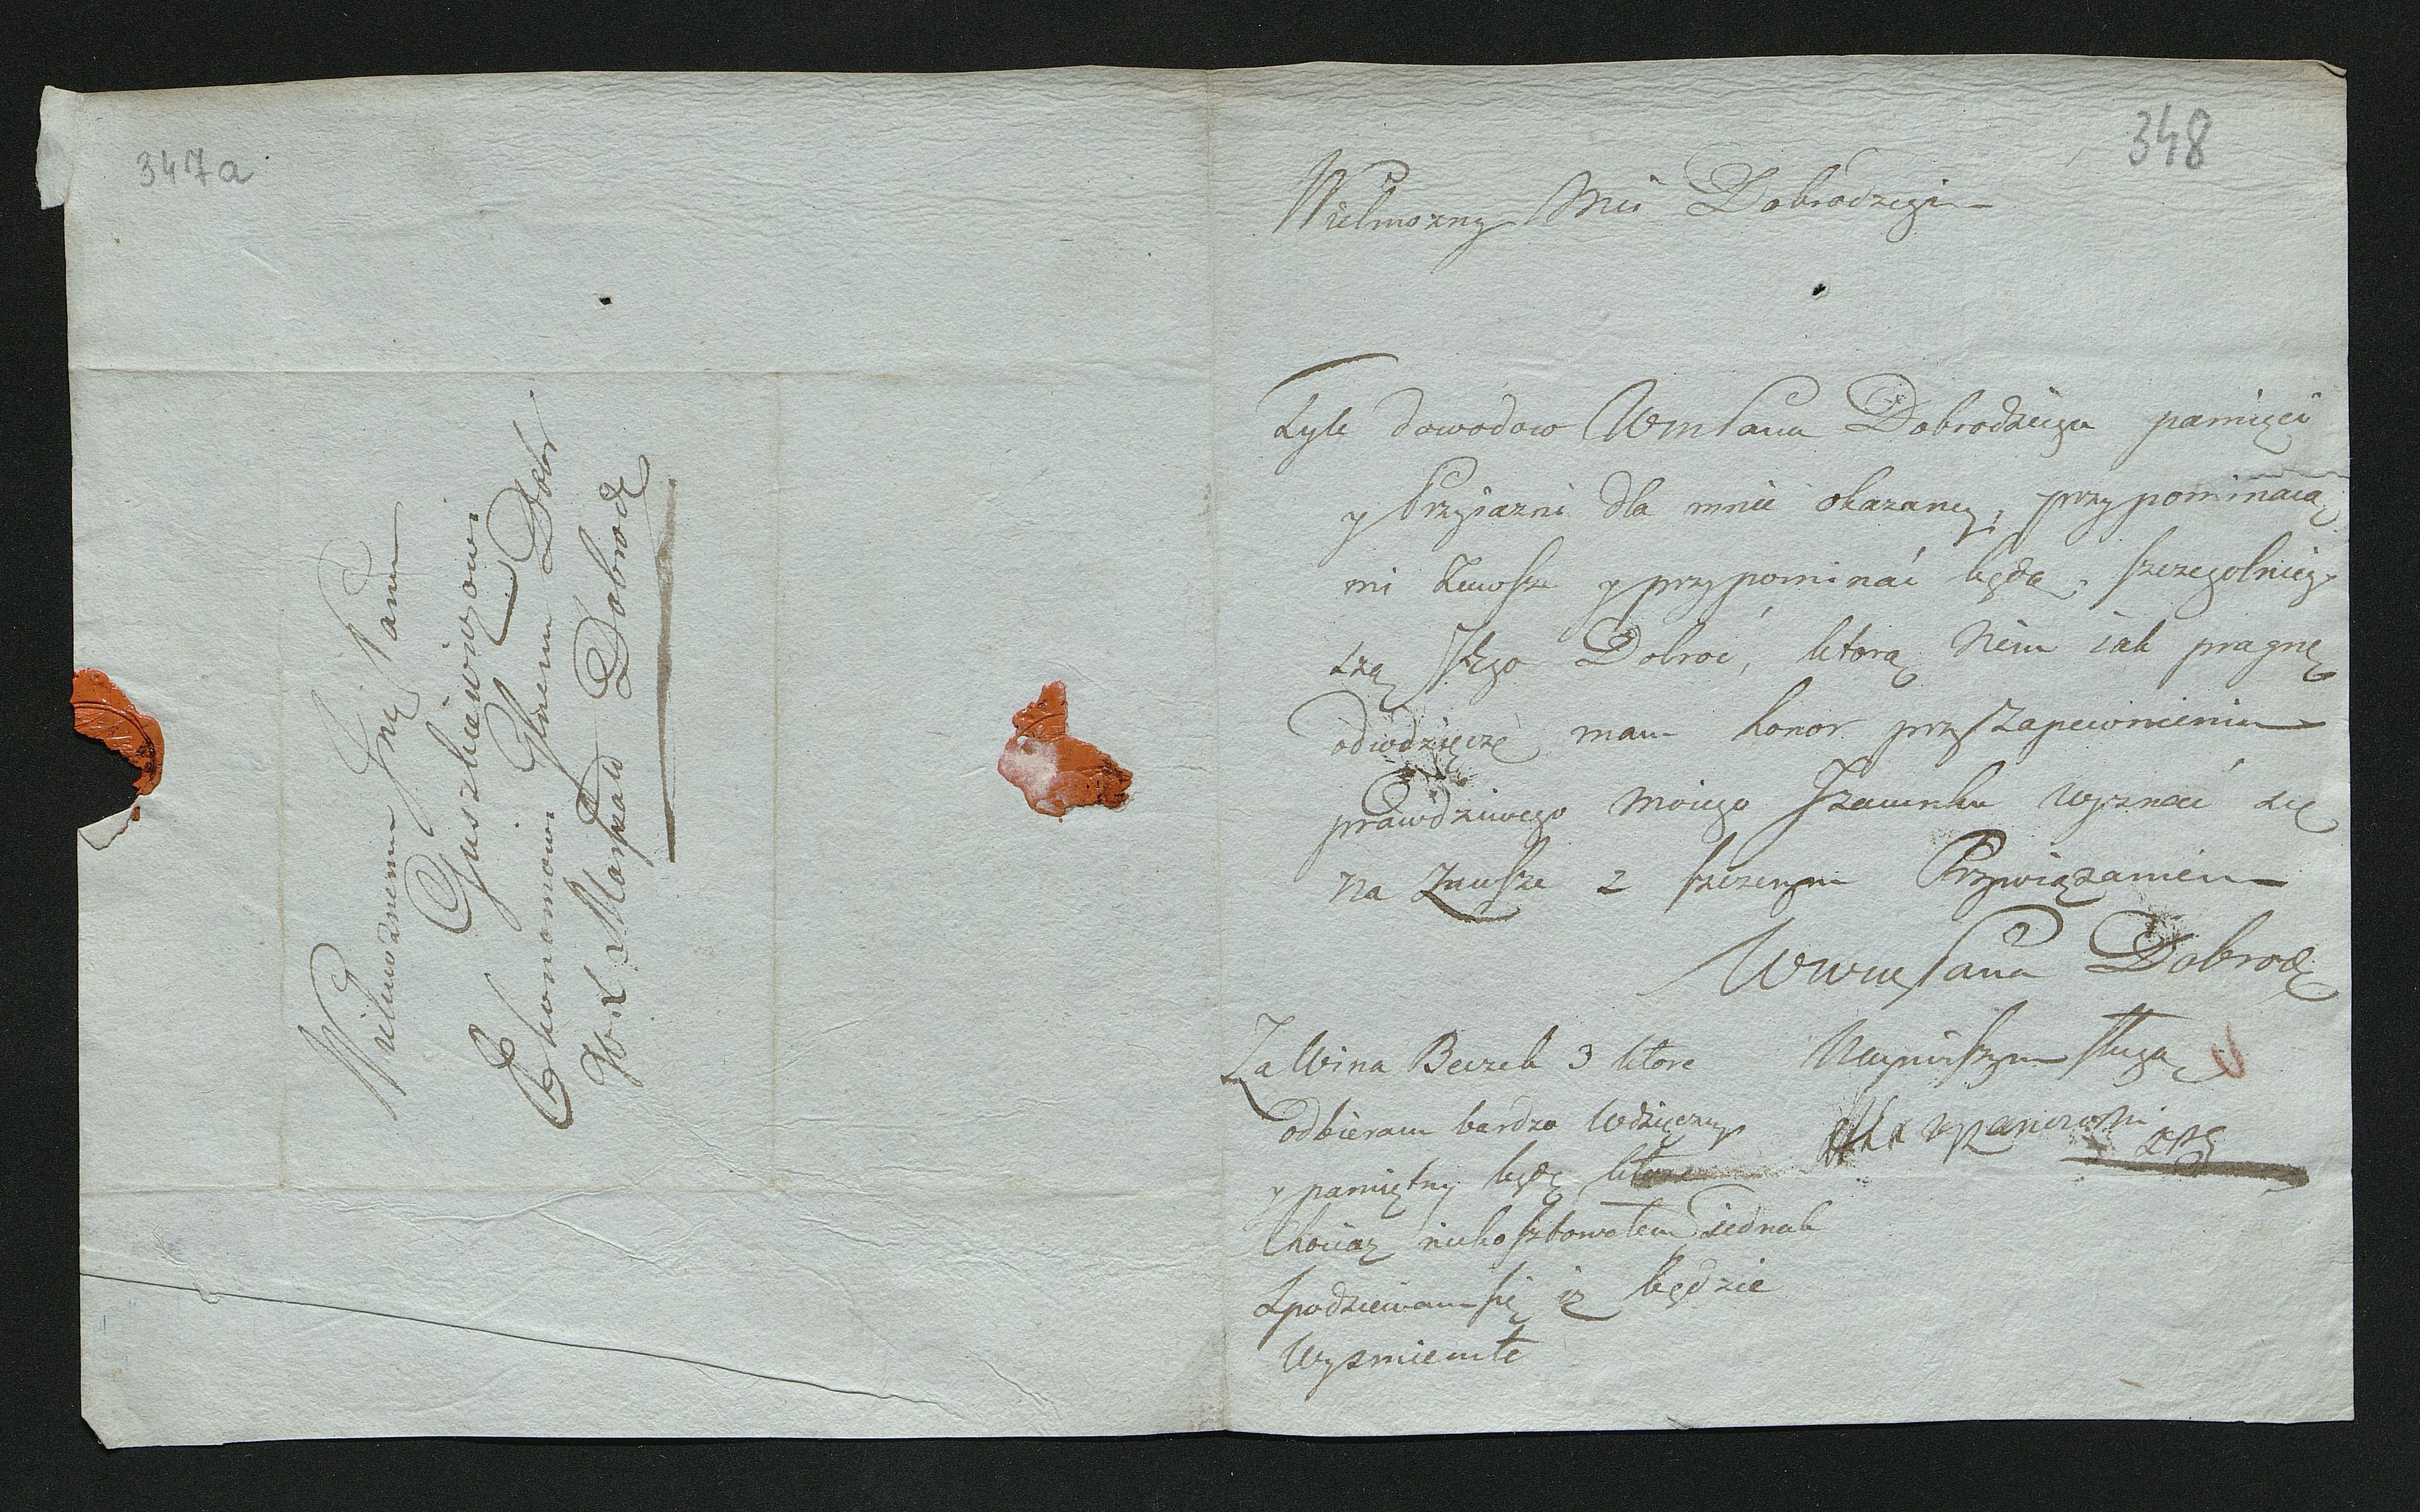 347a
Wielmożnemu Jmć Panu
Guszkiewiczowi
Ekonomowi Glnemu Dobr
JW X Marszał Dobrodź
348
Wielmozny Mci Dobrodzeju
Tyle dowodow WmPana Dobrodzieja pamięci
y Przyiazni dla mnie okazaney, przypominaią
mi zawsze y przypominać będą, szczegolniey
szą Jego Dobroć, ktorą Nim iak pragnę
odwdzięczę mam honor przy zapewnieniu
prawdziwego moiego Szacunku wyznać się
na Zawsze z szczerym Przywiązaniem
WWmPana Dobrodź
Nayniszym sługą
Za Wina Beczek 3 ktore
odbieram bardzo Wdzięczny
y pamiętny będę
Chociaz niekosztowałem iednak
Spodziewam się iz będzie
Wysmienite